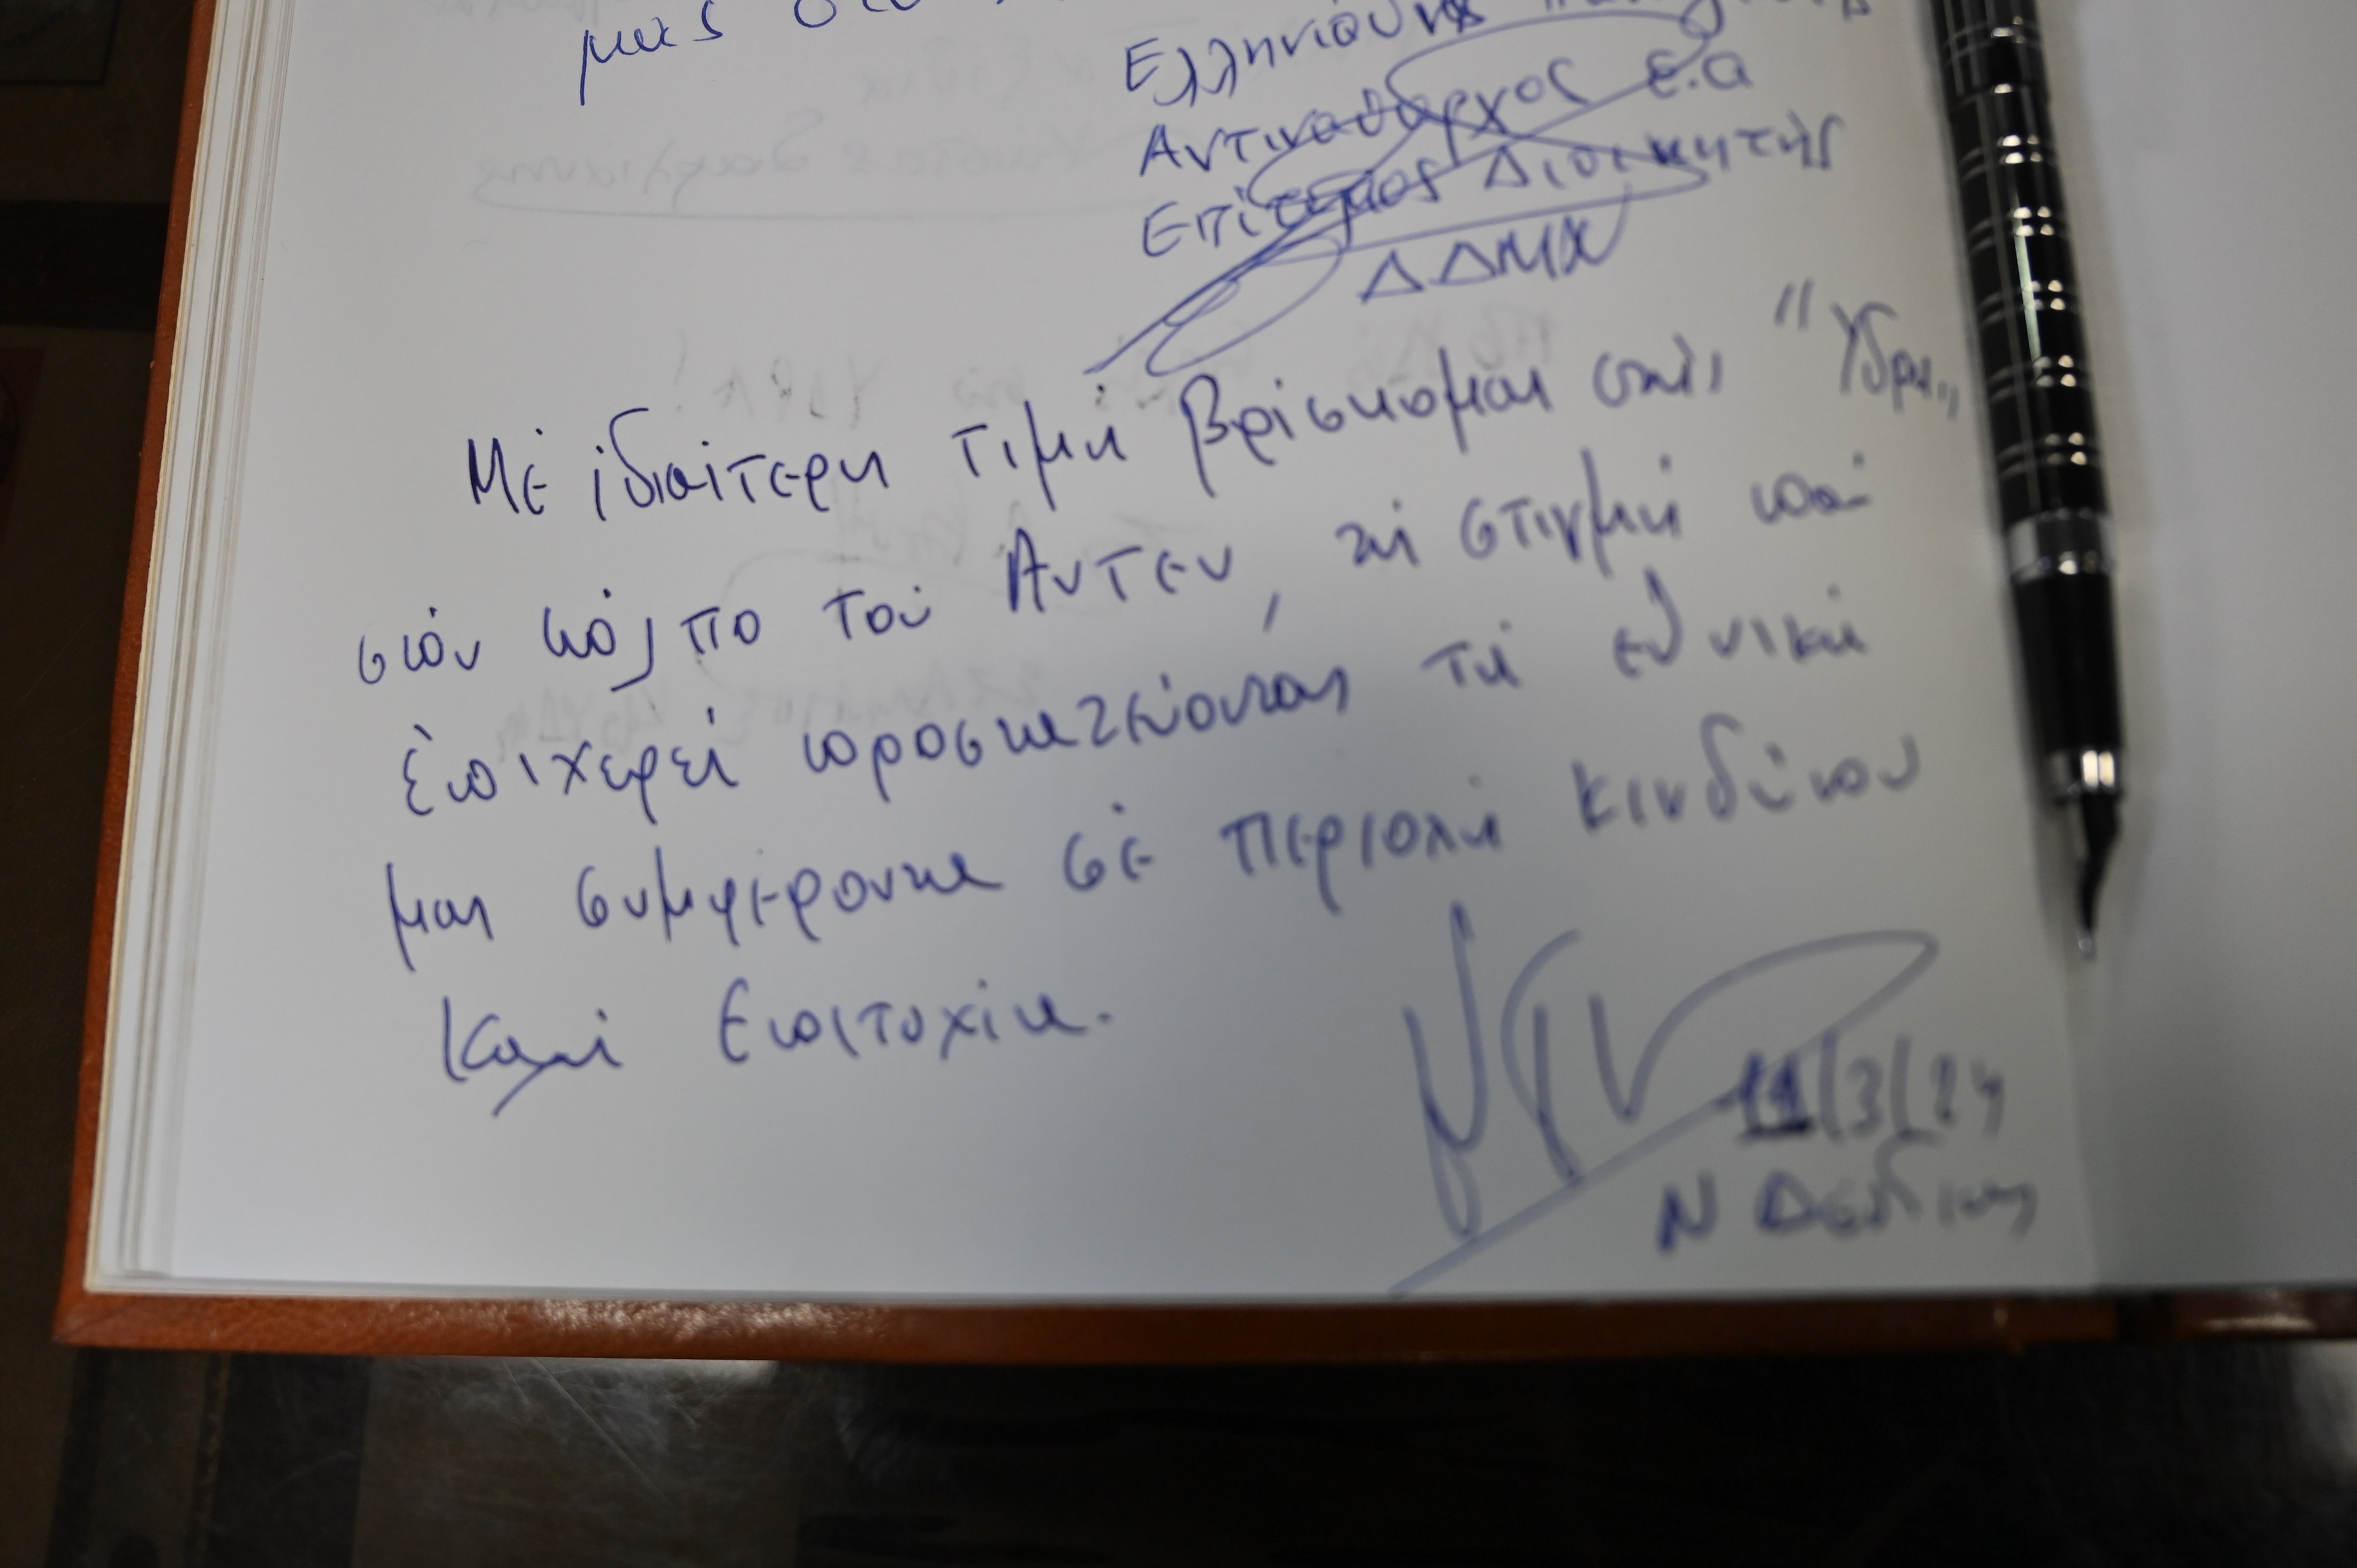 μας στο
Ελληνιούνης Παναγιώτης
Αντιναύαρχος ε.α
Επίτιμος Διοικητής
ΔΔΜΧ
Μέ ἰδιαίτερη τιμή βρίσκομαι στήν "Υδρα"
στόν κόλπο τοῦ Αντεν, τή στιγμή πού
ἐπιχερεί προστατεύοντας τά εθνικά
μας συμφέροντα σέ περιοχή κινδύνου
Καλή Επιτυχία.
11/3/24
Ν Δένδιας